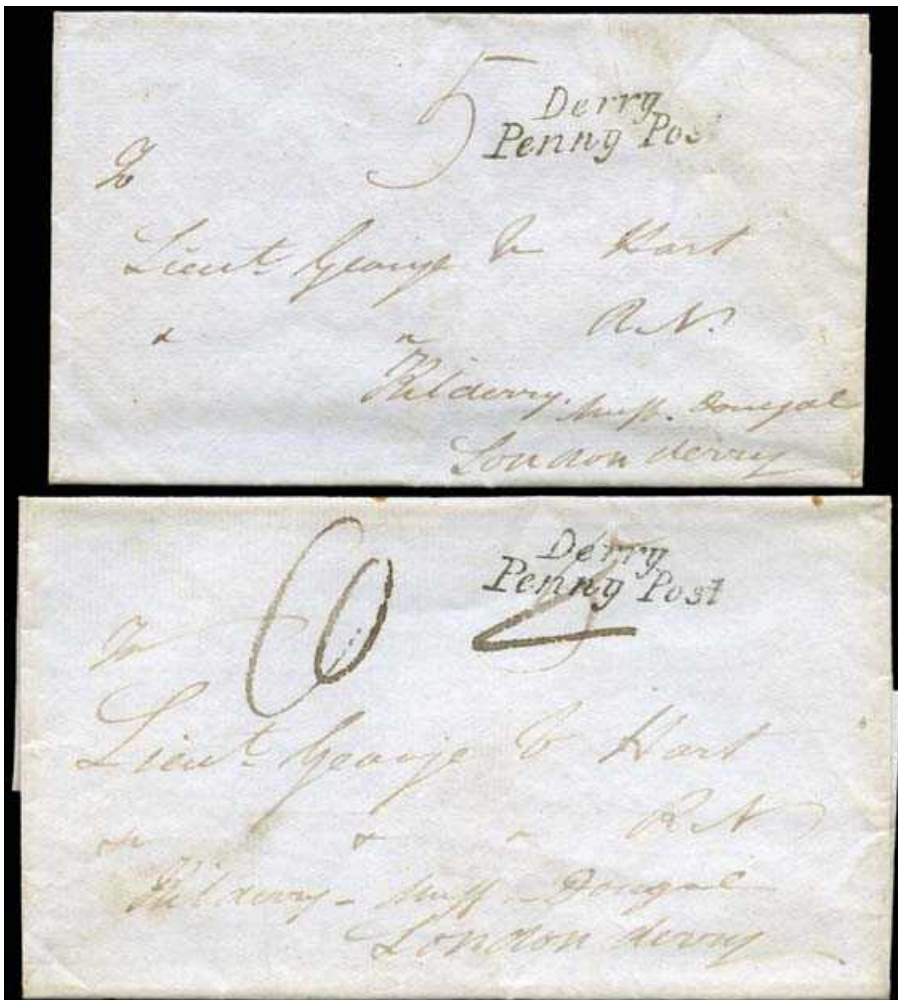 5
Derry
Penny Pos
To
Lieut. George V Hart
R.N.
Kilderry. Muff. Donegal
Londonderry
6
Derry
Penny Post
To
Lieut. George V Hart
R.N
Kilderry - Muff - Donegal
Londonderry